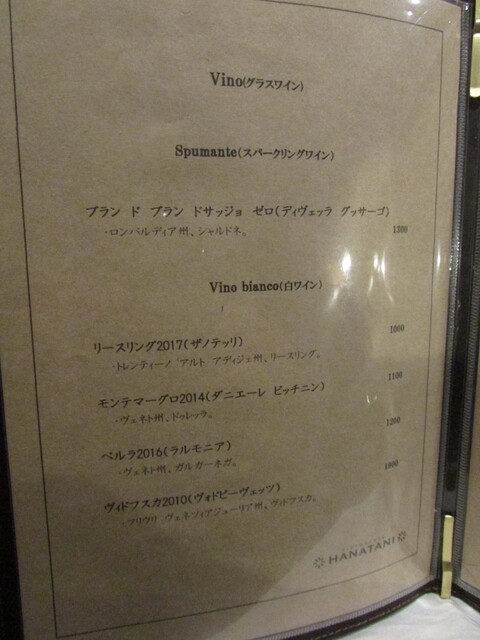 Vino(グラスワイン)
Spumante(スパークリングワイン)
ブラン ド ブラン ドサッジョ ゼロ(ディヴェッラ グッサーゴ)
・ロンバルディア州、シャルドネ。 1300
Vino bianco(白ワイン)
リースリング2017(ザノテッリ) 1000
・トレンティーノ アルト アディジェ州、リースリング。
モンテマーグロ2014(ダニエーレ ピッチニン) 1100
・ヴェネト州、ドゥレッラ。
ペルラ2016(ラルモニア) 1200
・ヴェネト州、ガルガーネガ。
ヴィドフスカ2010(ヴォドピーヴェッツ)
・フリウリ ヴェネツィアジューリア州、ヴィドフスカ。
HANATANI